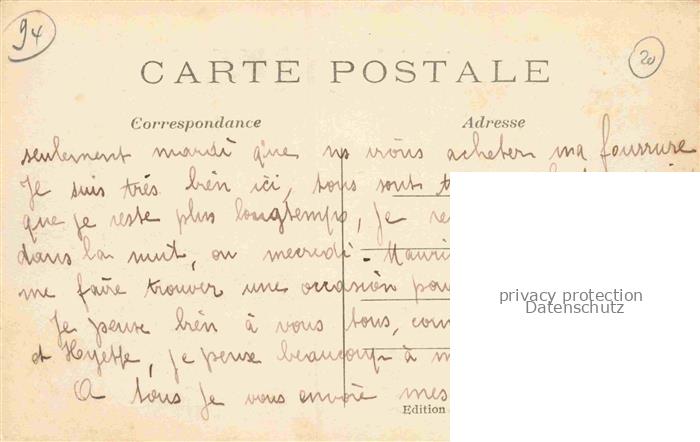 94
20
CARTE POSTALE
Correspondance
Adresse
seulement mardi que ns irons acheter ma fourrure
Je suis très bien ici, tous sont
que je reste plus longtemps, je
dans la nuit, ou mecredi - Mauri
me faire trouver une occasion pou
Je pense bien à vous tous,
et je pense beaucoup à
A tous je vous envoie mes
Edition
privacy protection
Datenschutz